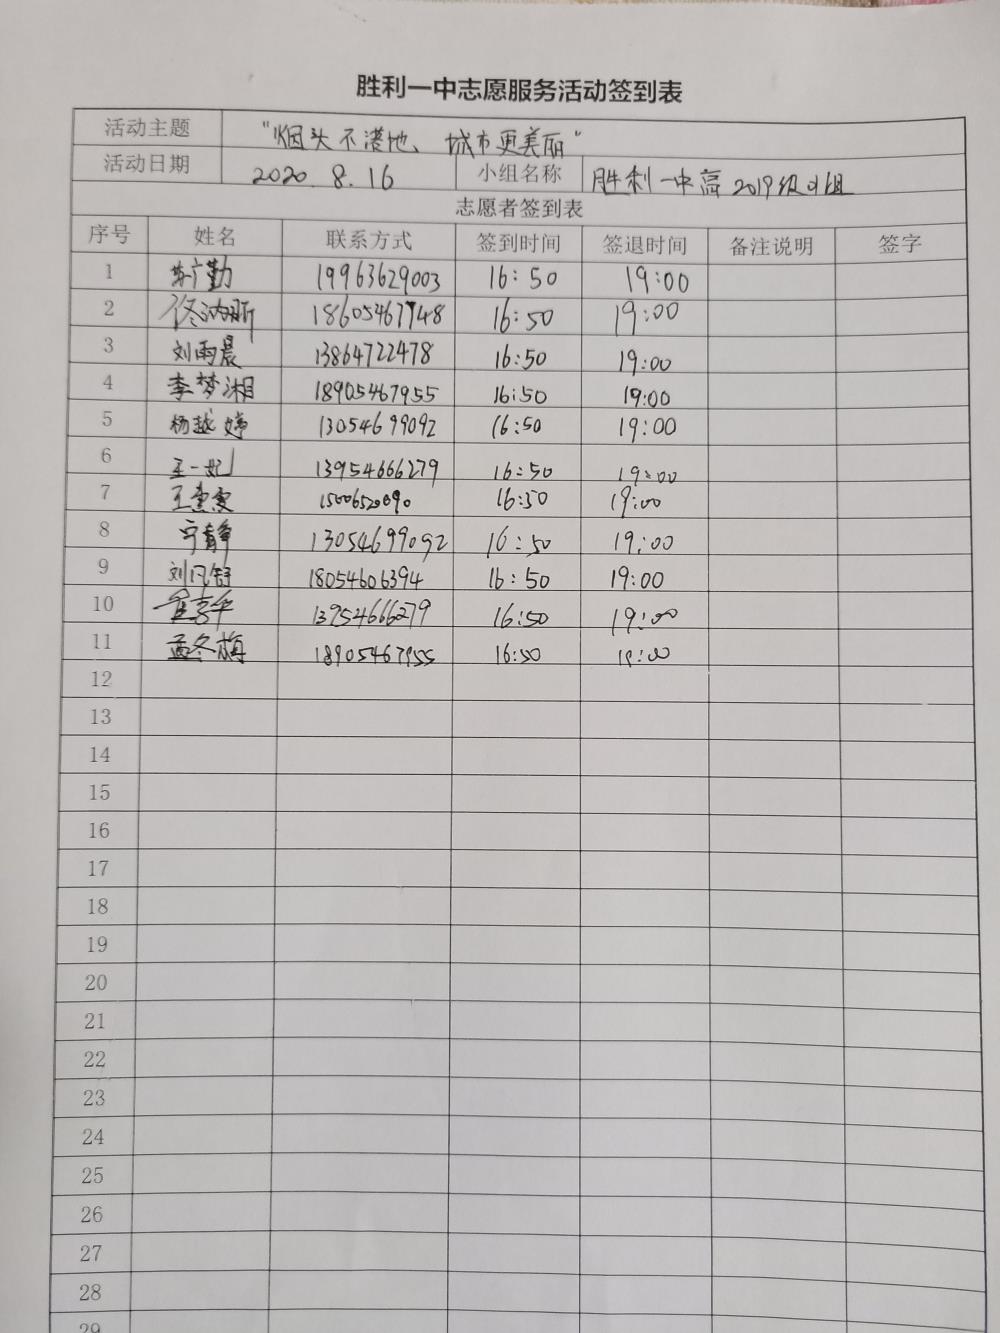 胜利一中志愿服务活动签到表
活动主题 "烟头不落地、城市更美丽"
活动日期 2020.8.16 小组名称 胜利一中高2019级
志愿者签到表
序号 姓名 联系方式 签到时间 签退时间 备注说明 签字
1 广勤 19963629003 16:50 19:00
2 佟 18605467748 16:50 19:00
3 刘雨晨 13864722478 16:50 19:00
4 李梦湘 18905467955 16:50 19:00
5 杨越婷 13054699092 16:50 19:00
6 王一妃 13954666279 16:50 19:00
7 王惠雯 15006520090 16:50 19:00
8 宁静 13054699092 16:50 19:00
9 刘凡舒 18054606394 16:50 19:00
10 13954666279 16:50 19:00
11 孟冬梅 18905467955 16:50 19:00
12
13
14
15
16
17
18
19
20
21
22
23
24
25
26
27
28
29